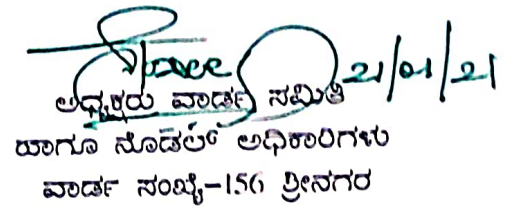 21/01/21
ಅಧ್ಯಕ್ಷರು ವಾರ್ಡ್ ಸಮಿತಿ
ಹಾಗೂ ನೊಡಲ್ ಅಧಿಕಾರಿಗಳು
ವಾರ್ಡ್ ಸಂಖ್ಯೆ-156 ಶ್ರೀನಗರ